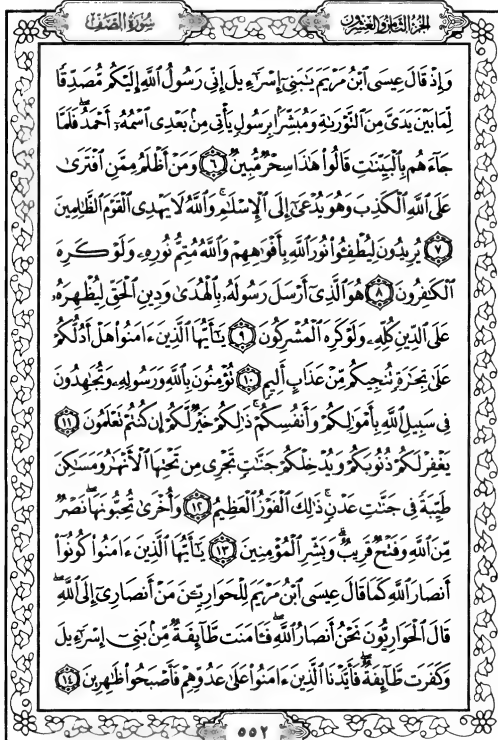 الجُزْءُ الثَّامِنُ وَالعِشْرُونَ
سُورَةُ الصَّفِّ
وَإِذْ قَالَ عِيسَى ٱبْنُ مَرْيَمَ يَٰبَنِىٓ إِسْرَٰٓءِيلَ إِنِّى رَسُولُ ٱللَّهِ إِلَيْكُم مُّصَدِّقًا
لِّمَا بَيْنَ يَدَىَّ مِنَ ٱلتَّوْرَىٰةِ وَمُبَشِّرًۢا بِرَسُولٍ يَأْتِى مِنۢ بَعْدِى ٱسْمُهُۥٓ أَحْمَدُ ۖ فَلَمَّا
جَآءَهُم بِٱلْبَيِّنَٰتِ قَالُوا۟ هَٰذَا سِحْرٌ مُّبِينٌ ٦ وَمَنْ أَظْلَمُ مِمَّنِ ٱفْتَرَىٰ
عَلَى ٱللَّهِ ٱلْكَذِبَ وَهُوَ يُدْعَىٰٓ إِلَى ٱلْإِسْلَٰمِ ۚ وَٱللَّهُ لَا يَهْدِى ٱلْقَوْمَ ٱلظَّٰلِمِينَ
٧ يُرِيدُونَ لِيُطْفِـُٔوا۟ نُورَ ٱللَّهِ بِأَفْوَٰهِهِمْ وَٱللَّهُ مُتِمُّ نُورِهِۦ وَلَوْ كَرِهَ
ٱلْكَٰفِرُونَ ٨ هُوَ ٱلَّذِىٓ أَرْسَلَ رَسُولَهُۥ بِٱلْهُدَىٰ وَدِينِ ٱلْحَقِّ لِيُظْهِرَهُۥ
عَلَى ٱلدِّينِ كُلِّهِۦ وَلَوْ كَرِهَ ٱلْمُشْرِكُونَ ٩ يَٰٓأَيُّهَا ٱلَّذِينَ ءَامَنُوا۟ هَلْ أَدُلُّكُمْ
عَلَىٰ تِجَٰرَةٍ تُنجِيكُم مِّنْ عَذَابٍ أَلِيمٍ ١٠ تُؤْمِنُونَ بِٱللَّهِ وَرَسُولِهِۦ وَتُجَٰهِدُونَ
فِى سَبِيلِ ٱللَّهِ بِأَمْوَٰلِكُمْ وَأَنفُسِكُمْ ۚ ذَٰلِكُمْ خَيْرٌ لَّكُمْ إِن كُنتُمْ تَعْلَمُونَ ١١
يَغْفِرْ لَكُمْ ذُنُوبَكُمْ وَيُدْخِلْكُمْ جَنَّٰتٍ تَجْرِى مِن تَحْتِهَا ٱلْأَنْهَٰرُ وَمَسَٰكِنَ
طَيِّبَةً فِى جَنَّٰتِ عَدْنٍ ۚ ذَٰلِكَ ٱلْفَوْزُ ٱلْعَظِيمُ ١٢ وَأُخْرَىٰ تُحِبُّونَهَا ۖ نَصْرٌ
مِّنَ ٱللَّهِ وَفَتْحٌ قَرِيبٌ ۗ وَبَشِّرِ ٱلْمُؤْمِنِينَ ١٣ يَٰٓأَيُّهَا ٱلَّذِينَ ءَامَنُوا۟ كُونُوٓا۟
أَنصَارَ ٱللَّهِ كَمَا قَالَ عِيسَى ٱبْنُ مَرْيَمَ لِلْحَوَارِيِّـۧنَ مَنْ أَنصَارِىٓ إِلَى ٱللَّهِ ۖ
قَالَ ٱلْحَوَارِيُّونَ نَحْنُ أَنصَارُ ٱللَّهِ ۖ فَـَٔامَنَت طَّآئِفَةٌ مِّنۢ بَنِىٓ إِسْرَٰٓءِيلَ
وَكَفَرَت طَّآئِفَةٌ ۖ فَأَيَّدْنَا ٱلَّذِينَ ءَامَنُوا۟ عَلَىٰ عَدُوِّهِمْ فَأَصْبَحُوا۟ ظَٰهِرِينَ ١٤
٥٥٢